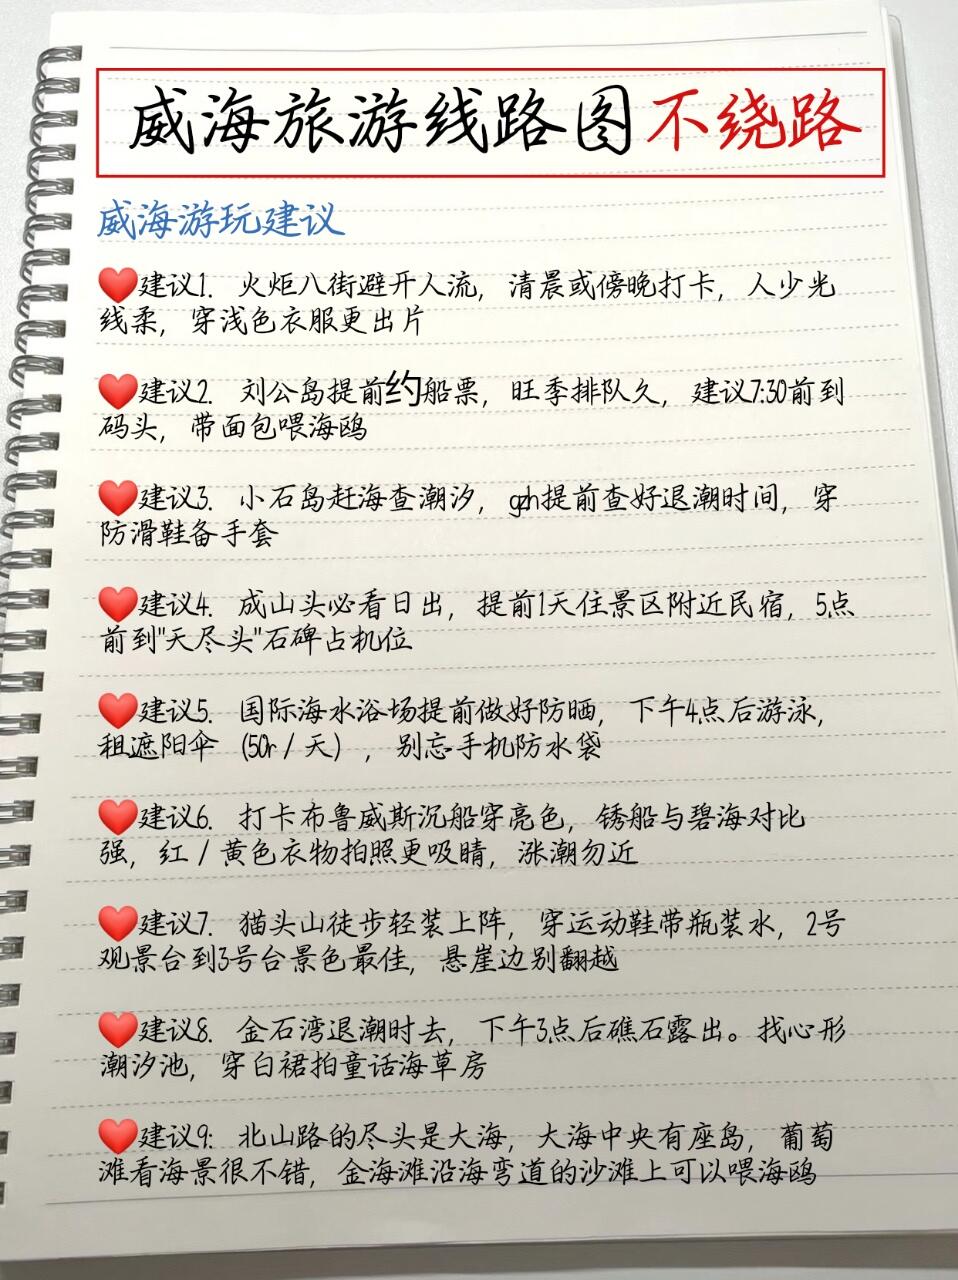 威海旅游线路图不绕路
威海游玩建议
❤️建议1. 火炬八街避开人流，清晨或傍晚打卡，人少光
线柔，穿浅色衣服更出片
❤️建议2. 刘公岛提前约船票，旺季排队久，建议7:30前到
码头，带面包喂海鸥
❤️建议3. 小石岛赶海查潮汐，gzh提前查好退潮时间，穿
防滑鞋备手套
❤️建议4. 成山头必看日出，提前1天住景区附近民宿，5点
前到"天尽头"石碑占机位
❤️建议5. 国际海水浴场提前做好防晒，下午4点后游泳，
租遮阳伞（50r/天），别忘手机防水袋
❤️建议6. 打卡布鲁威斯沉船穿亮色，锈船与碧海对比
强，红/黄色衣物拍照更吸睛，涨潮勿近
❤️建议7. 猫头山徒步轻装上阵，穿运动鞋带瓶装水，2号
观景台到3号台景色最佳，悬崖边别翻越
❤️建议8. 金石湾退潮时去，下午3点后礁石露出。找心形
潮汐池，穿白裙拍童话海草房
❤️建议9: 北山路的尽头是大海，大海中央有座岛，葡萄
滩看海景很不错，金海滩沿海弯道的沙滩上可以喂海鸥